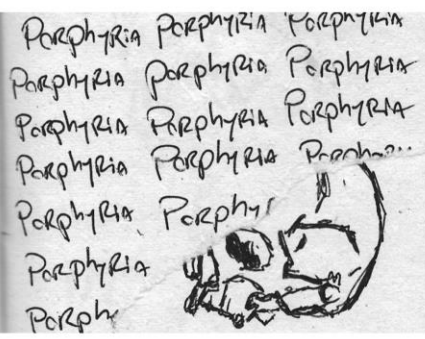 Porphyria Porphyria Porphyria
Porphyria Porphyria Porphyria
Porphyria Porphyria Porphyria
Porphyria Porphyria Porphyri
Porphyria Porphy
Porphyria
Porphy